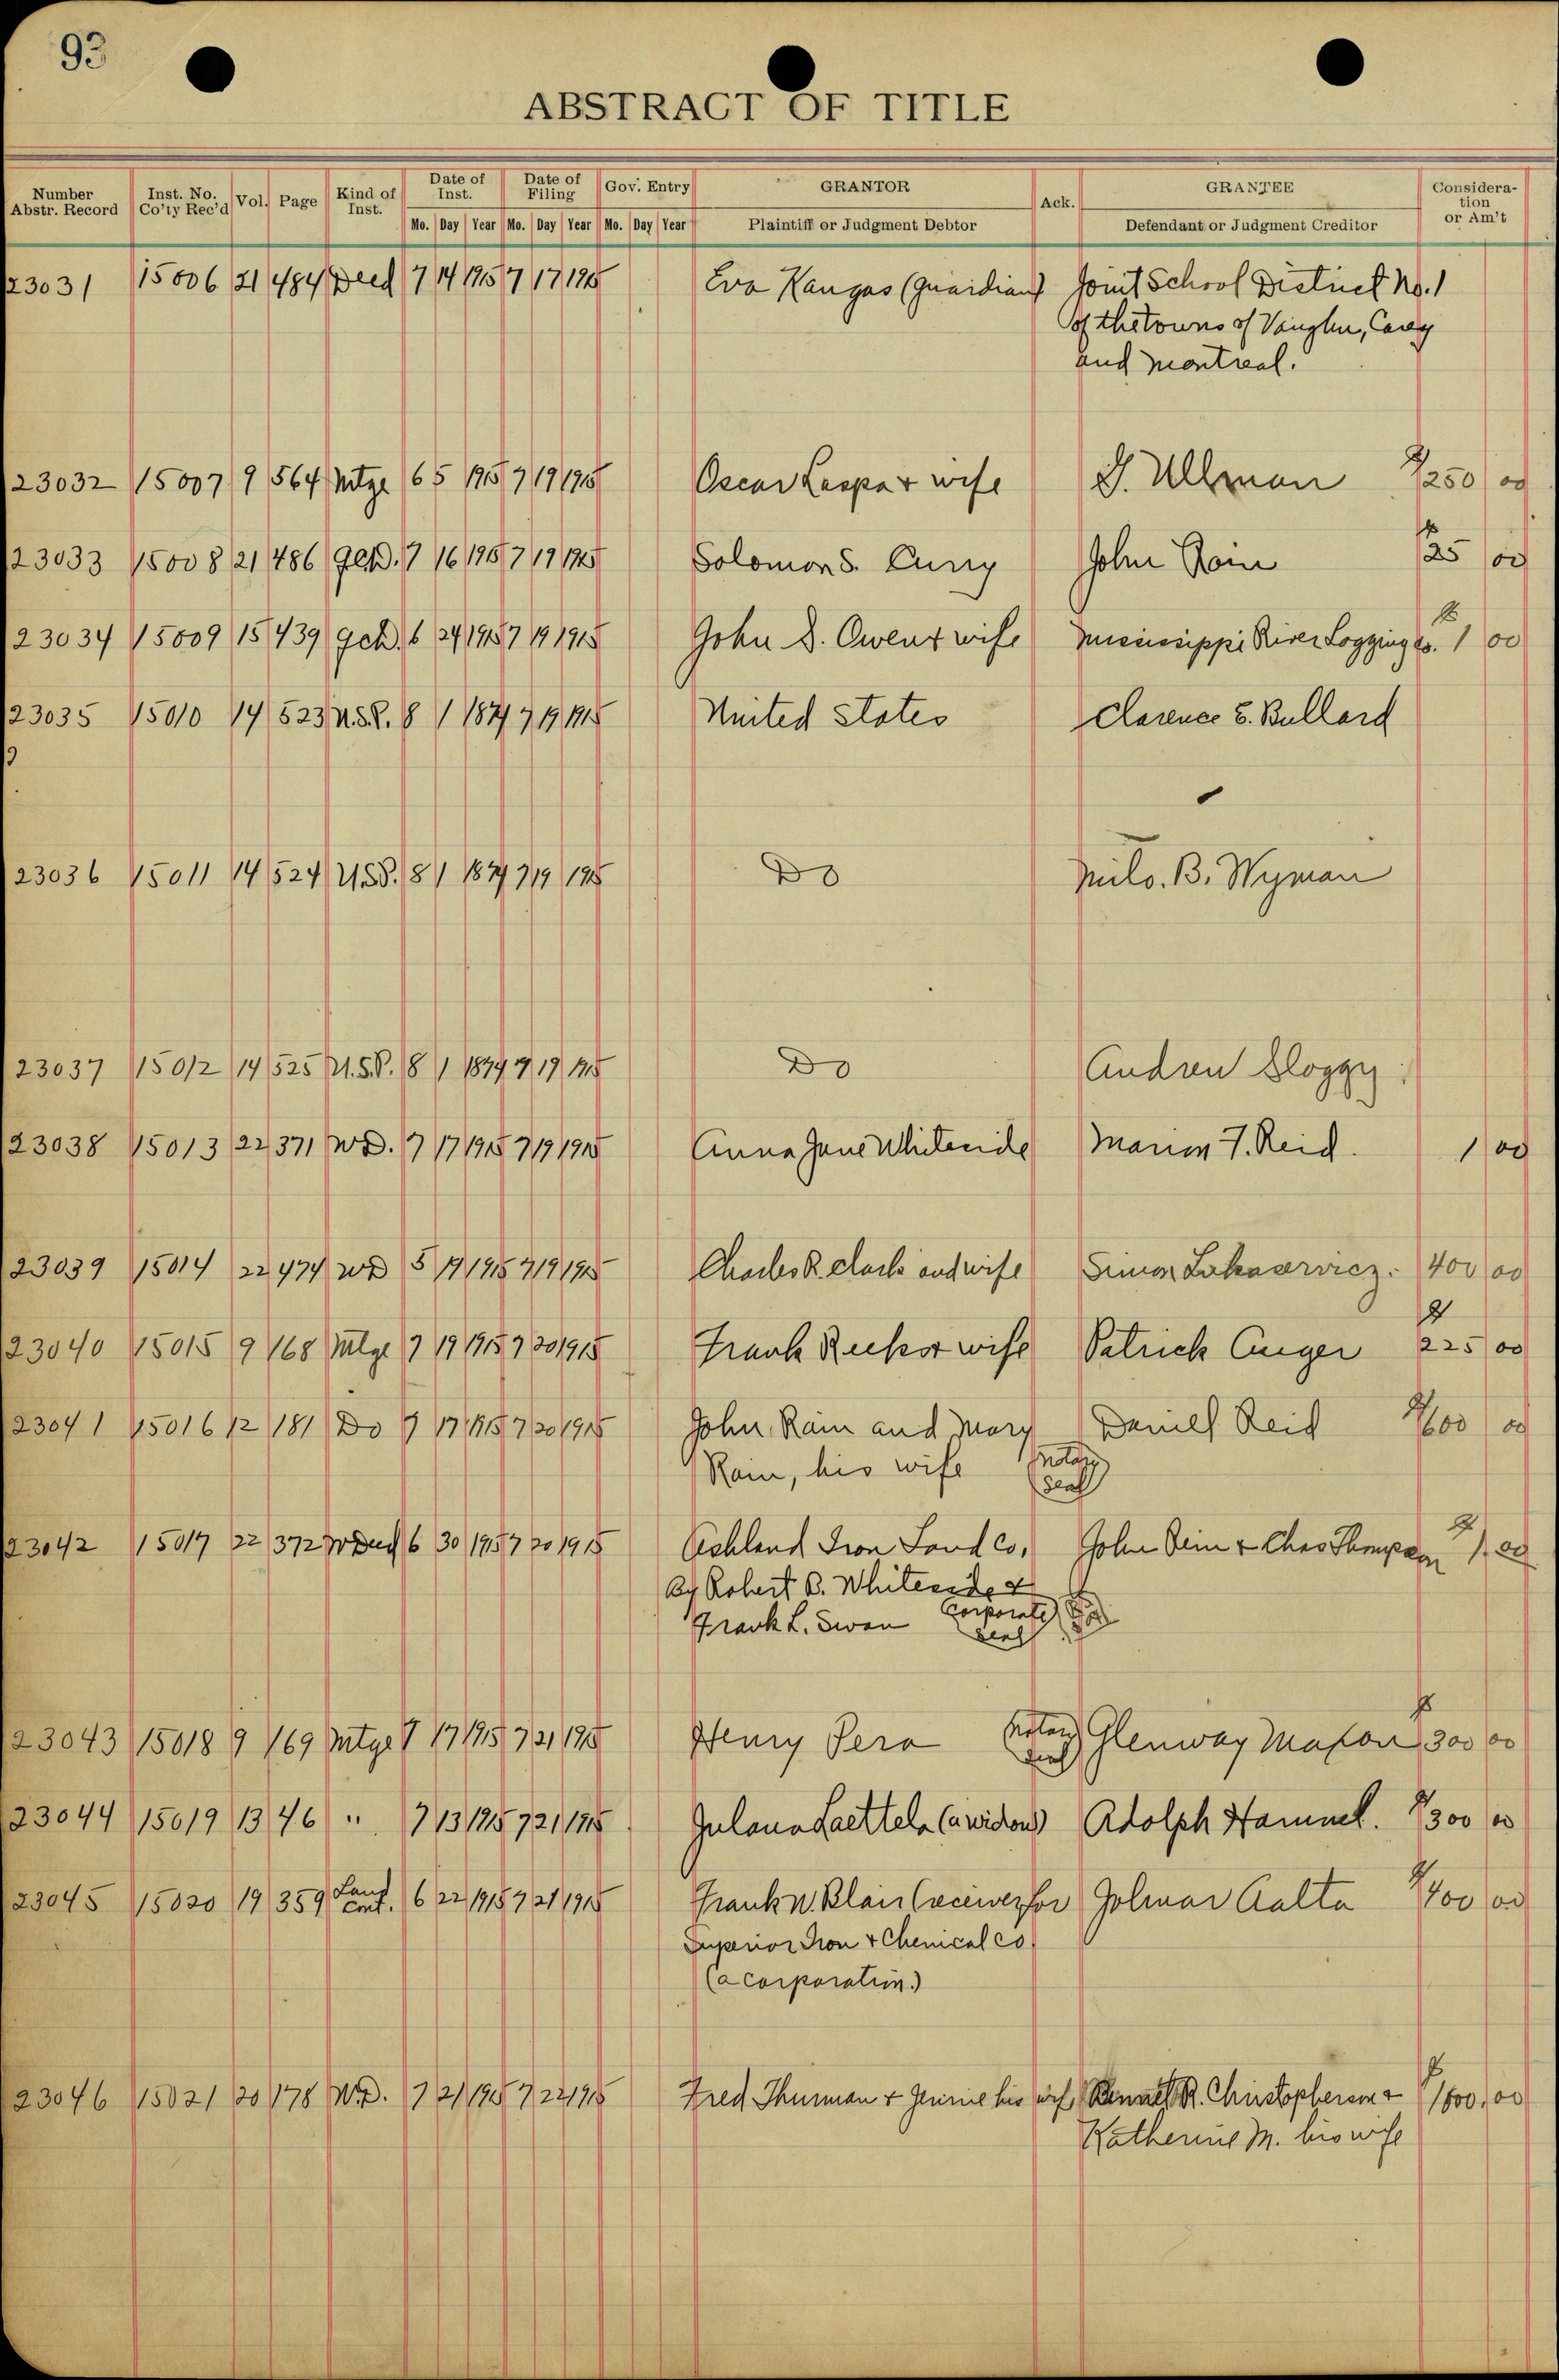 93
ABSTRACT OF TITLE
Number Abstr. Record Inst. No. Co'ty Rec'd Vol. Page Kind of Inst. Date of Inst. Date of Filing Gov. Entry GRANTOR Ack. GRANTEE Consideration or Am't
Mo. Day Year Mo. Day Year Mo. Day Year Plaintiff or Judgment Debtor Defendant or Judgment Creditor
23031 15006 21 484 Deed 7 14 1915 7 17 1915 Eva Kangas (Guardian) Joint School District No. 1
of the towns of Vaughn, Carey
and Montreal.
23032 15007 9 564 Mtge 6 5 1915 7 19 1915 Oscar Laspa & wife J. Ullman $250 00
23033 15008 21 486 QCD. 7 16 1915 7 19 1915 Solomon S. Curry John Rain $25 00
23034 15009 15 439 QCD. 6 24 1915 7 19 1915 John S. Owen & wife Mississippi River Logging Co. $1 00
23035 15010 14 523 U.S.P. 8 1 1874 7 19 1915 United States Clarence E. Bullard
23036 15011 14 524 U.S.P. 8 1 1874 7 19 1915 Do Milo. B. Wyman
23037 15012 14 525 U.S.P. 8 1 1874 7 19 1915 Do Andrew Sloggy
23038 15013 22 371 WD. 7 17 1915 7 19 1915 Anna Jane Whiteside Marion T. Reid. 1 00
23039 15014 22 474 WD 5 19 1915 7 19 1915 Charles R. Clark and wife Simon 400 00
23040 15015 9 168 Mtge 7 19 1915 7 20 1915 Frank & wife Patrick $225 00
23041 15016 12 181 Do 7 17 1915 7 20 1915 John Rain and Mary Daniel Reid $600 00
Rain, his wife Notary
Seal
23042 15017 22 372 W Deed 6 30 1915 7 20 1915 Ashland Iron Land Co. John & Chas Thompson $1.00
By Robert B. Whiteside &
Frank L. Swan Corporate
Seal
23043 15018 9 169 Mtge 7 17 1915 7 21 1915 Henry Pera Notary Seal Glenway Maxon $300 00
23044 15019 13 46 " 7 13 1915 7 21 1915 Laettela (a widow) Adolph Hammel. $300 00
23045 15020 19 359 Land Cont. 6 22 1915 7 21 1915 Frank W. Blair (receiver for Jolmar Aalto $400 00
Superior Iron & Chemical Co
(a corporation.)
23046 15021 20 178 W.D. 7 21 1915 7 22 1915 Fred Thurman & Jennie his wife R. Christopherson & $1600.00
Katherine M. his wife